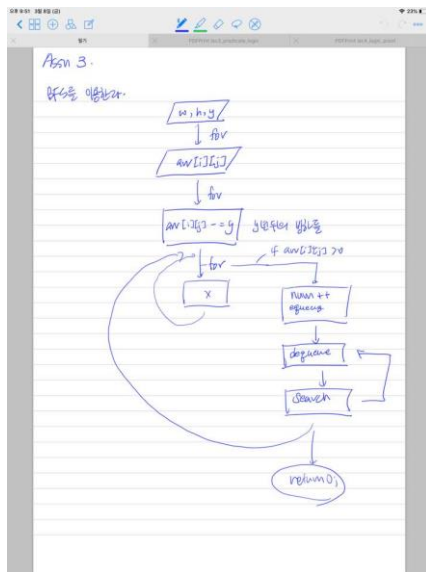 오후 9:31 3월 8일 (금)
23%
필기
Assn 3.
BFS를 이용한다.
w, h, y
for
arr[i][j]
for
arr[i][j] -= y
for
if arr[i][j] > 0
x
num ++
dequeue
Search
return 0;